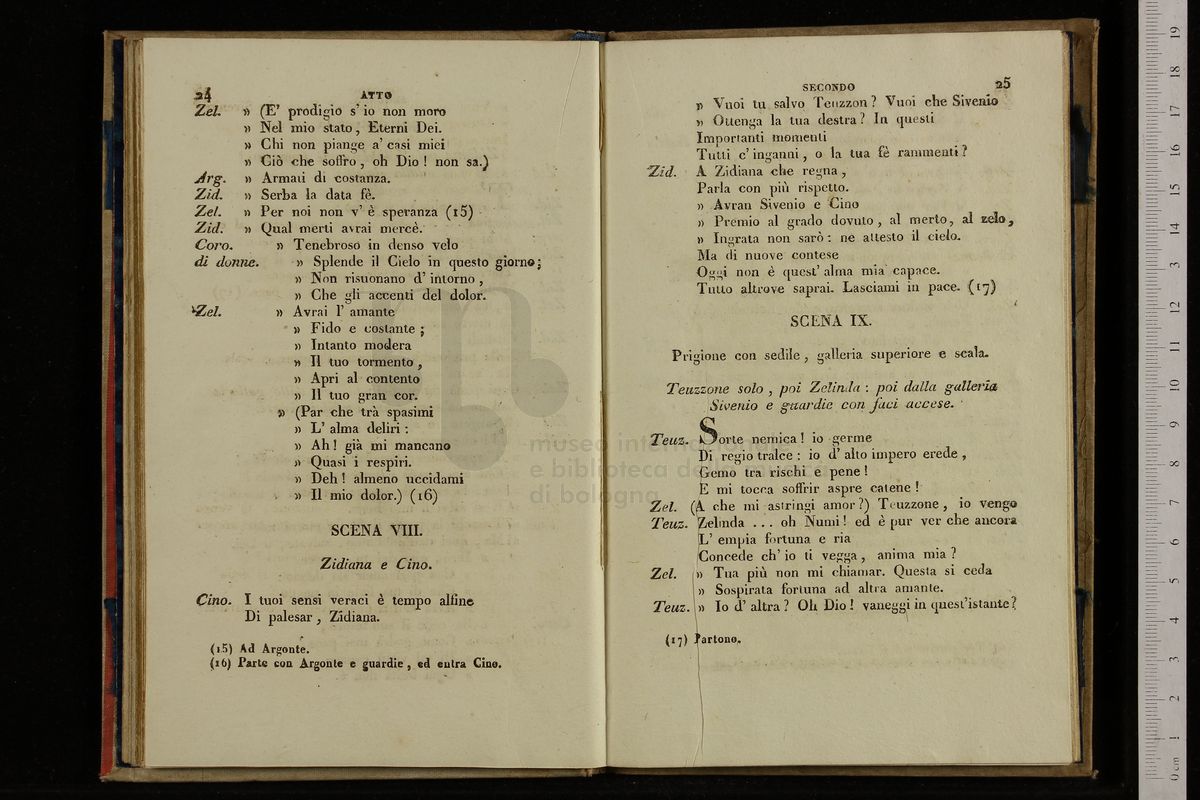 24
ATTO
Zel. » (E' prodigio s' io non moro
» Nel mio stato, Eterni Dei.
» Chi non piange a' casi miei
» Ciò che soffro, oh Dio! non sa.)
Arg. » Armati di costanza.
Zid. » Serba la data fè.
Zel. » Per noi non v' è speranza (15)
Zid. » Qual merti avrai mercè.
Coro. » Tenebroso in denso velo
di donne. » Splende il Cielo in questo giorno;
» Non risuonano d' intorno,
» Che gli accenti del dolor.
Zel. » Avrai l' amante
» Fido e costante;
» Intanto modera
» Il tuo tormento,
» Apri al contento
» Il tuo gran cor.
» (Par che trà spasimi
» L' alma deliri:
» Ah! già mi mancano
» Quasi i respiri.
» Deh! almeno uccidami
» Il mio dolor.) (16)
SCENA VIII.
Zidiana e Cino.
Cino. I tuoi sensi veraci è tempo alfine
Di palesar, Zidiana.
(15) Ad Argonte.
(16) Parte con Argonte e guardie, ed entra Cino.
SECONDO
25
» Vuoi tu salvo Teuzzon? Vuoi che Sivenio
» Ottenga la tua destra? In questi
Importanti momenti
Tutti c' inganni, o la tua fè rammenti?
Zid. A Zidiana che regna,
Parla con più rispetto.
» Avran Sivenio e Cino
» Premio al grado dovuto, al merto, al zelo,
» Ingrata non sarò: ne attesto il cielo.
Ma di nuove contese
Oggi non è quest' alma mia capace.
Tutto altrove saprai. Lasciami in pace. (17)
SCENA IX.
Prigione con sedile, galleria superiore e scala.
Teuzzone solo, poi Zelinda: poi dalla galleria
Sivenio e guardie con faci accese.
Teuz. Sorte nemica! io germe
Di regio tralce: io d' alto impero erede,
Gemo tra rischi e pene!
E mi tocca soffrir aspre catene!
Zel. (A che mi astringi amor?) Teuzzone, io vengo
Teuz. Zelinda ... oh Numi! ed è pur ver che ancora
L' empia fortuna e ria
Concede ch' io ti vegga, anima mia?
Zel. » Tua più non mi chiamar. Questa si ceda
» Sospirata fortuna ad altra amante.
Teuz. » Io d' altra? Oh Dio! vaneggi in quest'istante?
(17) Partono.
museo internazionale
e biblioteca de
di bologna
0 cm 1 2 3 4 5 6 7 8 9 10 11 12 13 14 15 16 17 18 19